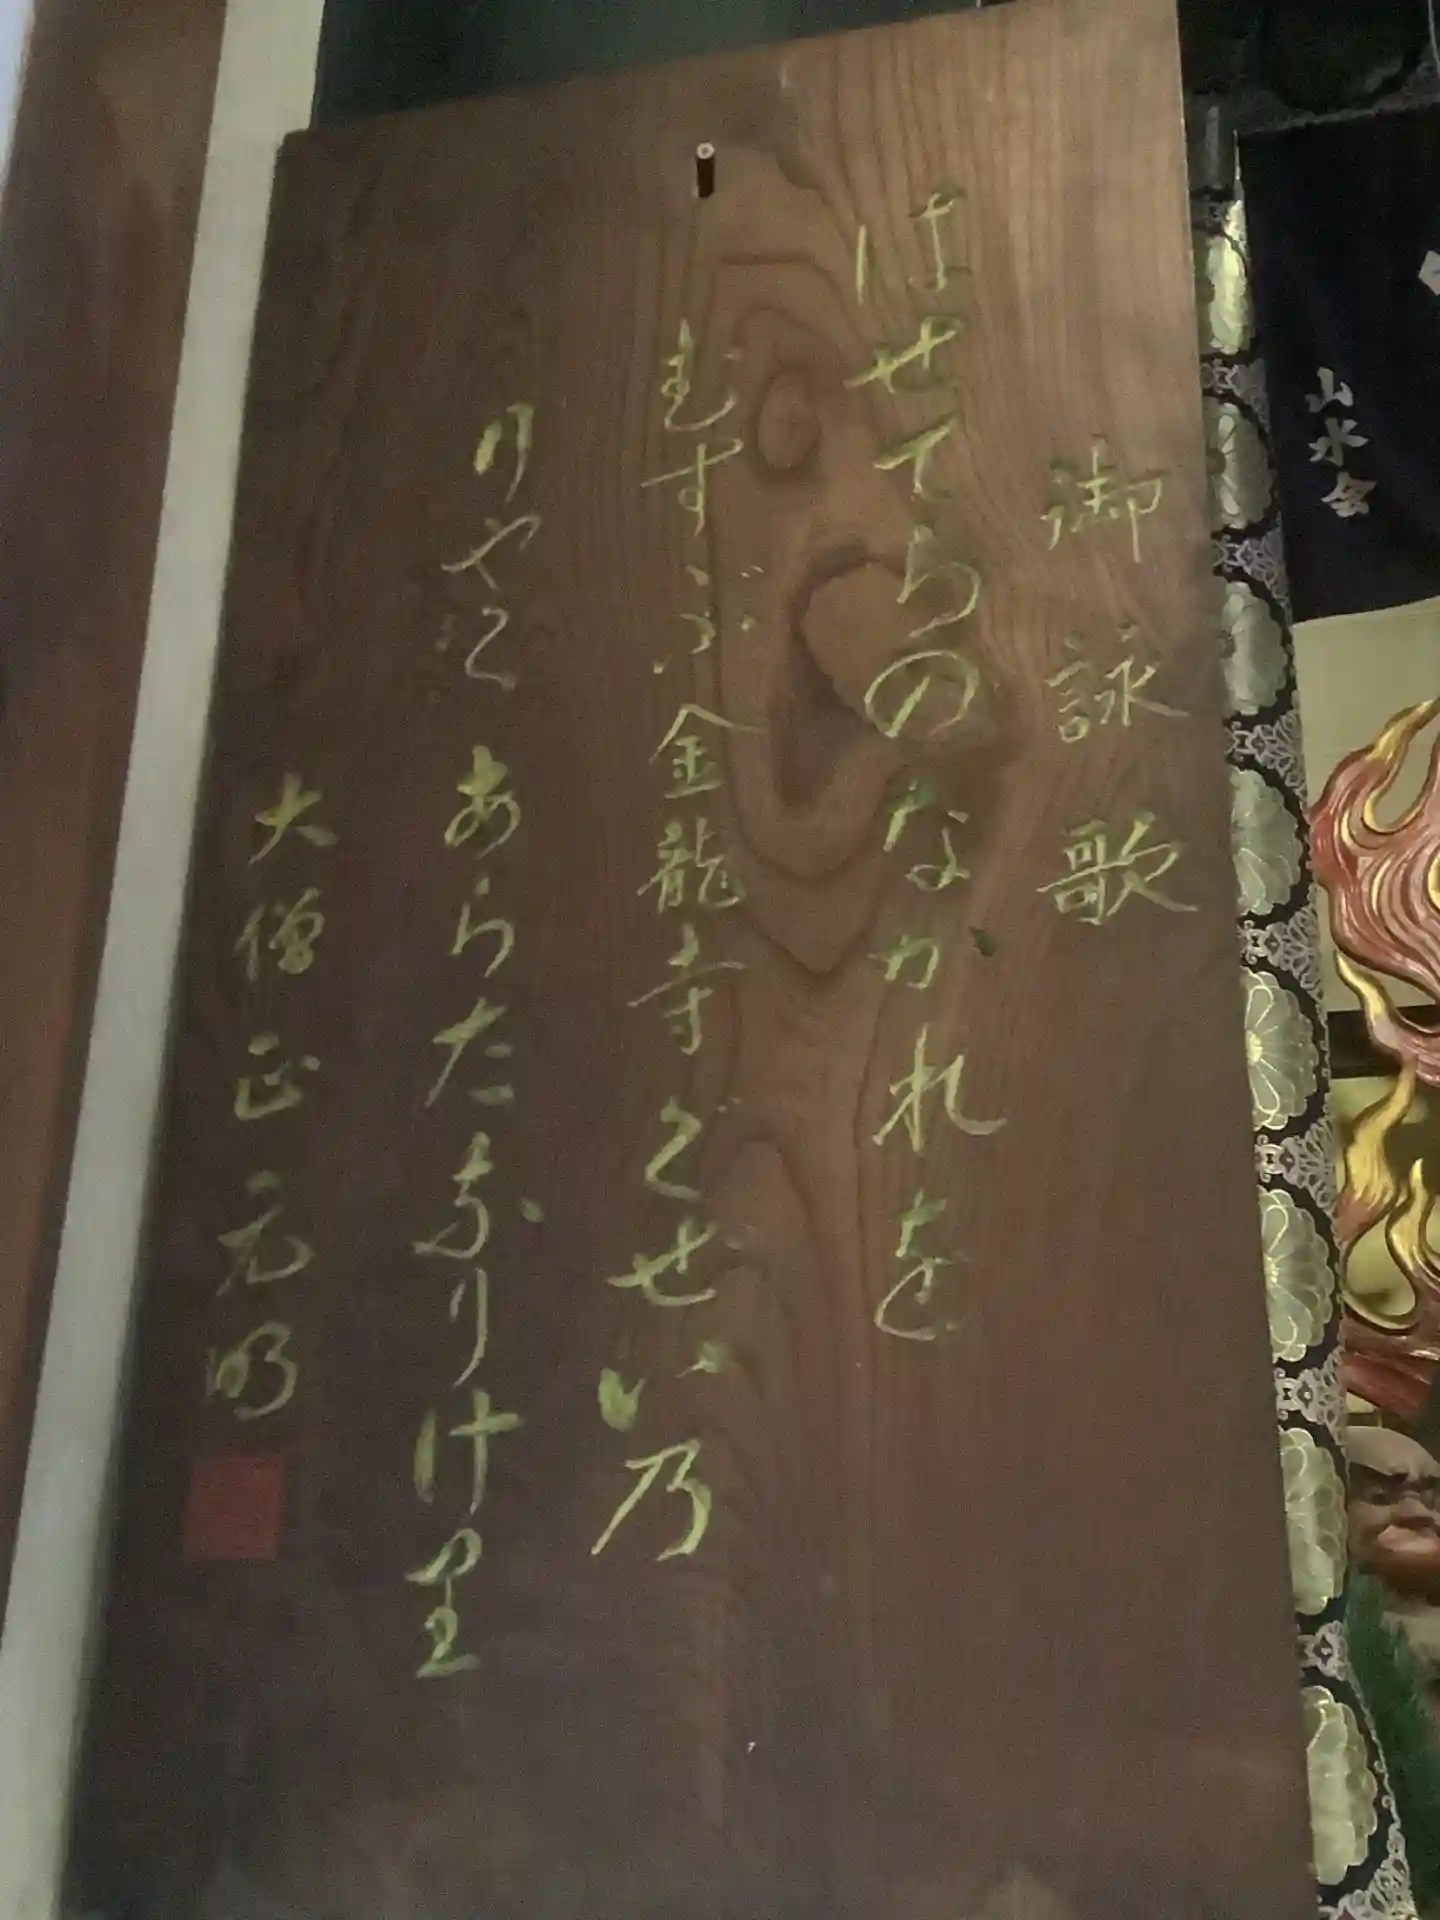 山水会
御詠歌
はせてらのながれを
むすぶ金龍寺ぐぜい乃
りやくあらたなりけ里
大僧正